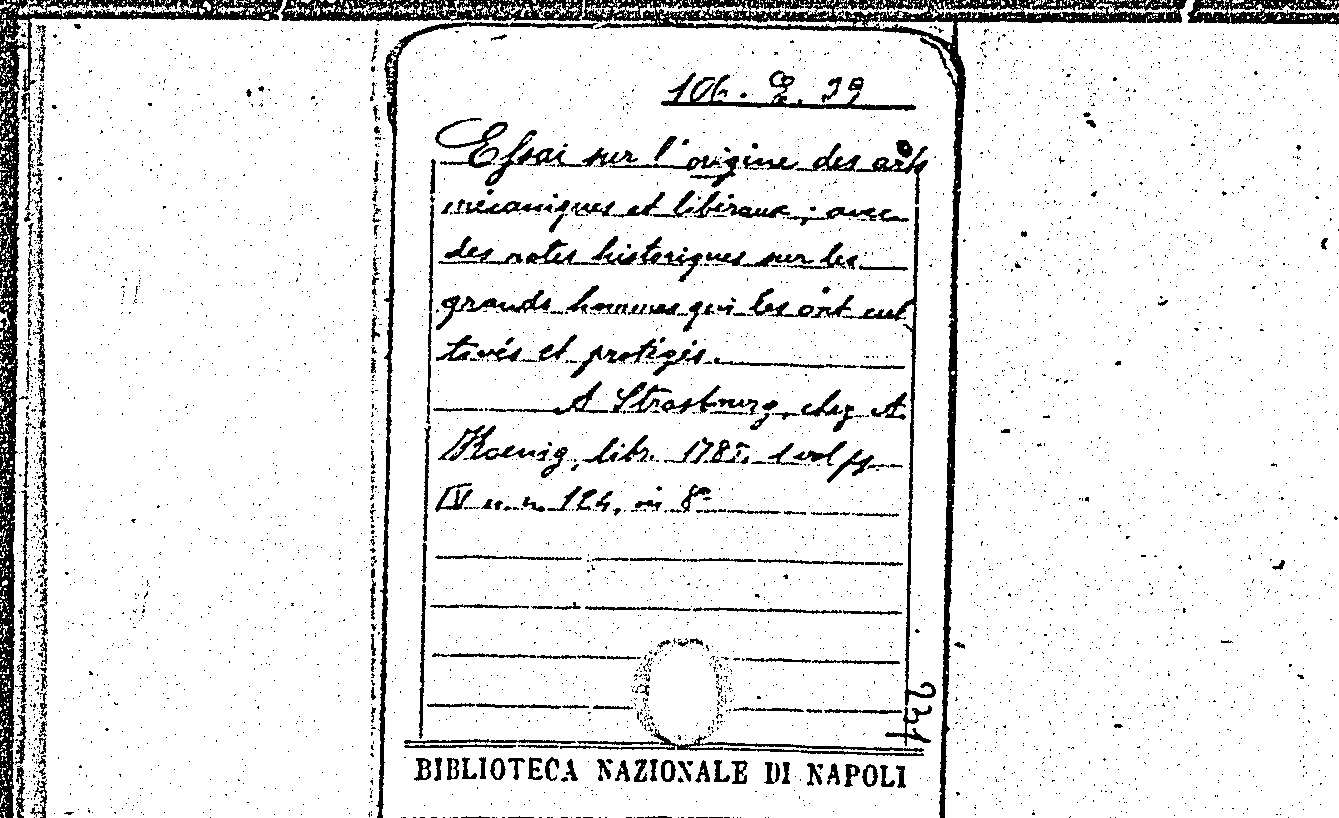 106. E. 39
Essai sur l'origine des arts
mécaniques et libéraux; avec
des notes historiques sur les
grands hommes qui les ont cul
tivés et protégés.
A Strasbourg, chez A.
Koenig, libr. 178 1 vol pp
IV n.n. 124, in 8°
BIBLIOTECA NAZIONALE DI NAPOLI